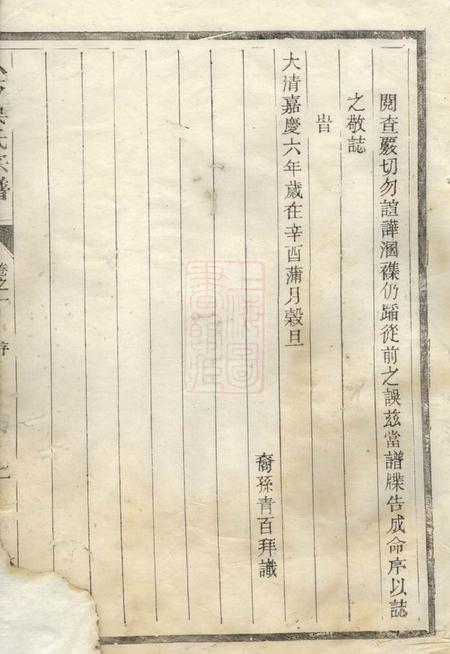 閱查嚴切勿諠譁溷襍仍蹈從前之誤茲當譜牒告成命序以誌
之敬誌
旹
大清嘉慶六年歲在辛酉蒲月榖旦
裔孫青百拜讖
吳氏宗譜
卷之一
序
上海圖書館藏